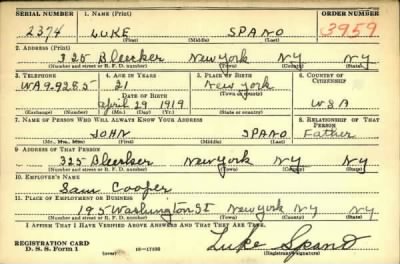 SERIAL NUMBER 1. NAME (Print) ORDER NUMBER
2374 LUKE SPANO 3959
(First) (Middle) (Last)
2. ADDRESS (Print)
325 Bleecker New York NY NY
(Number and street or R. F. D. number) (Town) (County) (State)
3. TELEPHONE 4. AGE IN YEARS 5. PLACE OF BIRTH 6. COUNTRY OF CITIZENSHIP
WA9-9285 21 New York
DATE OF BIRTH (Town or county)
April 29 1919 USA
(Exchange) (No.) (Mo.) (Day) (Yr.) (State or country)
7. NAME OF PERSON WHO WILL ALWAYS KNOW YOUR ADDRESS 8. RELATIONSHIP OF THAT PERSON
JOHN SPANO Father
(Mr., Mrs., Miss) (First) (Middle) (Last)
9. ADDRESS OF THAT PERSON
325 Bleecker New York NY NY
(Number and street or R. F. D. number) (Town) (County) (State)
10. EMPLOYER'S NAME
Sam Cooper
11. PLACE OF EMPLOYMENT OR BUSINESS
195 Washington St New York NY NY
(Number and street or R. F. D. number) (Town) (County) (State)
I AFFIRM THAT I HAVE VERIFIED ABOVE ANSWERS AND THAT THEY ARE TRUE.
REGISTRATION CARD
D. S. S. Form 1 (over) 16-17105 Luke Spano
(Registrant's signature)